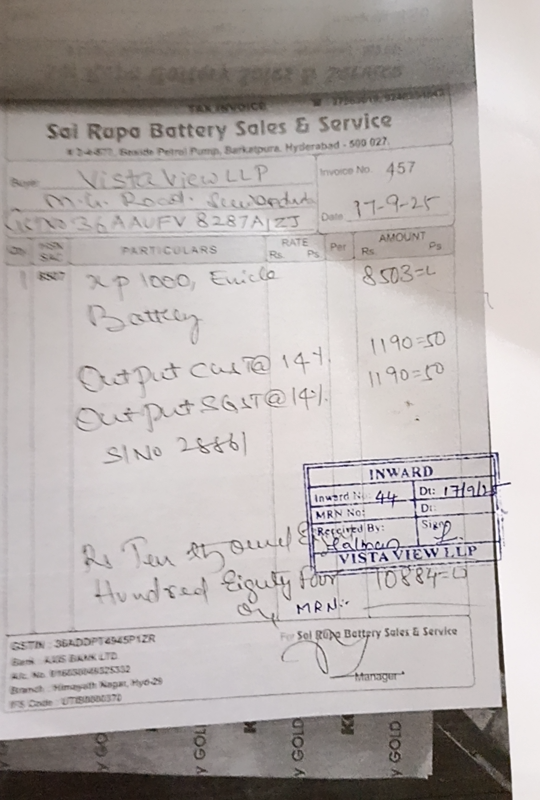 TAX INVOICE
Sai Rupa Battery Sales & Service
# 2-4-877, Beside Petrol Pump, Barkatpura, Hyderabad - 500 027.
Buyer Vista View LLP
Invoice No. 457
M.G. Road.
GST NO 36AAUFV8287A1ZJ
Date 17-9-25
Qty. HSN SAC PARTICULARS RATE Rs. Ps. Per AMOUNT Rs. Ps.
1 8507 xp 1000, 8503=
Battery
Output CGST@ 14%. 1190=50
Output SGST@14%. 1190=50
S/No 28861
INWARD
Inward No: 44 Dt: 17/9/25
MRN No: Dt:
Received By: Sign
VISTA VIEW LLP
Rs Ten thousand
Hundred Eighty four 10884=
only MRN:-
GSTIN : 36ADDPT4945P1ZR
For Sai Rupa Battery Sales & Service
Bank : AXIS BANK LTD.
A/c. No.
Branch : Himayath Nagar, Hyd-29
Manager
IFS Code : UTIB0000370
Y GOLD
Y GOLD
Y GOLD